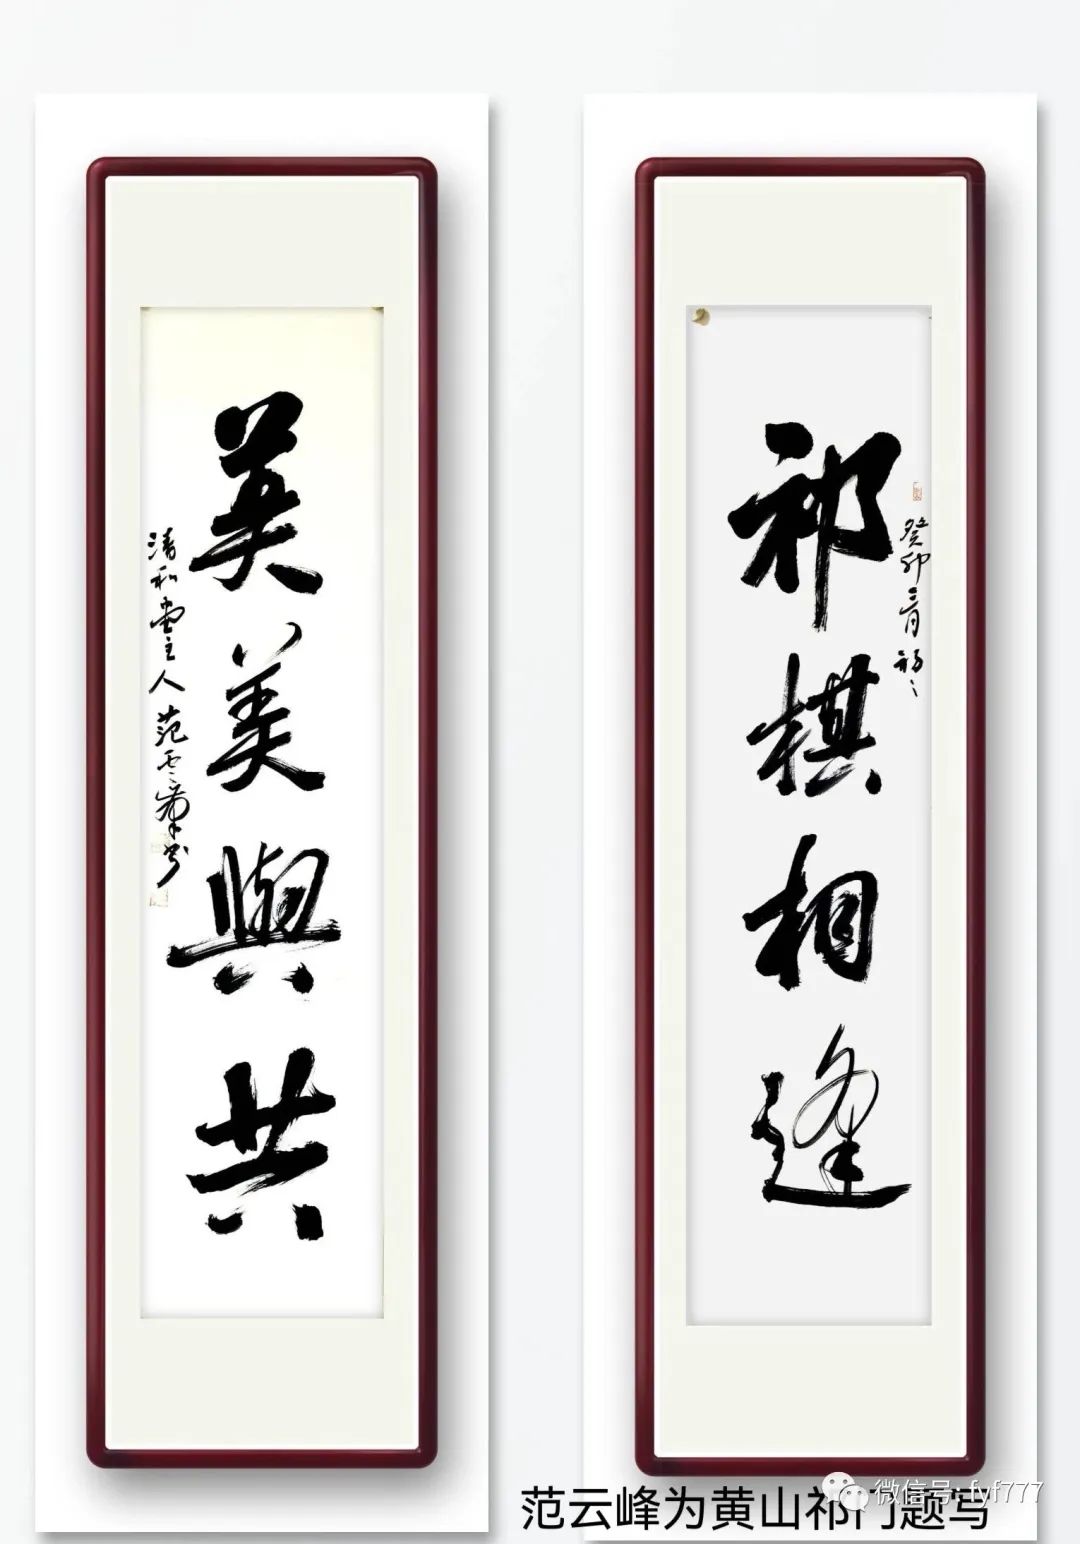 祁棋相逢
癸卯三月
美美與共
清和堂主人范云峰书
范云峰为黄山祁门题写
微信号:fyf777